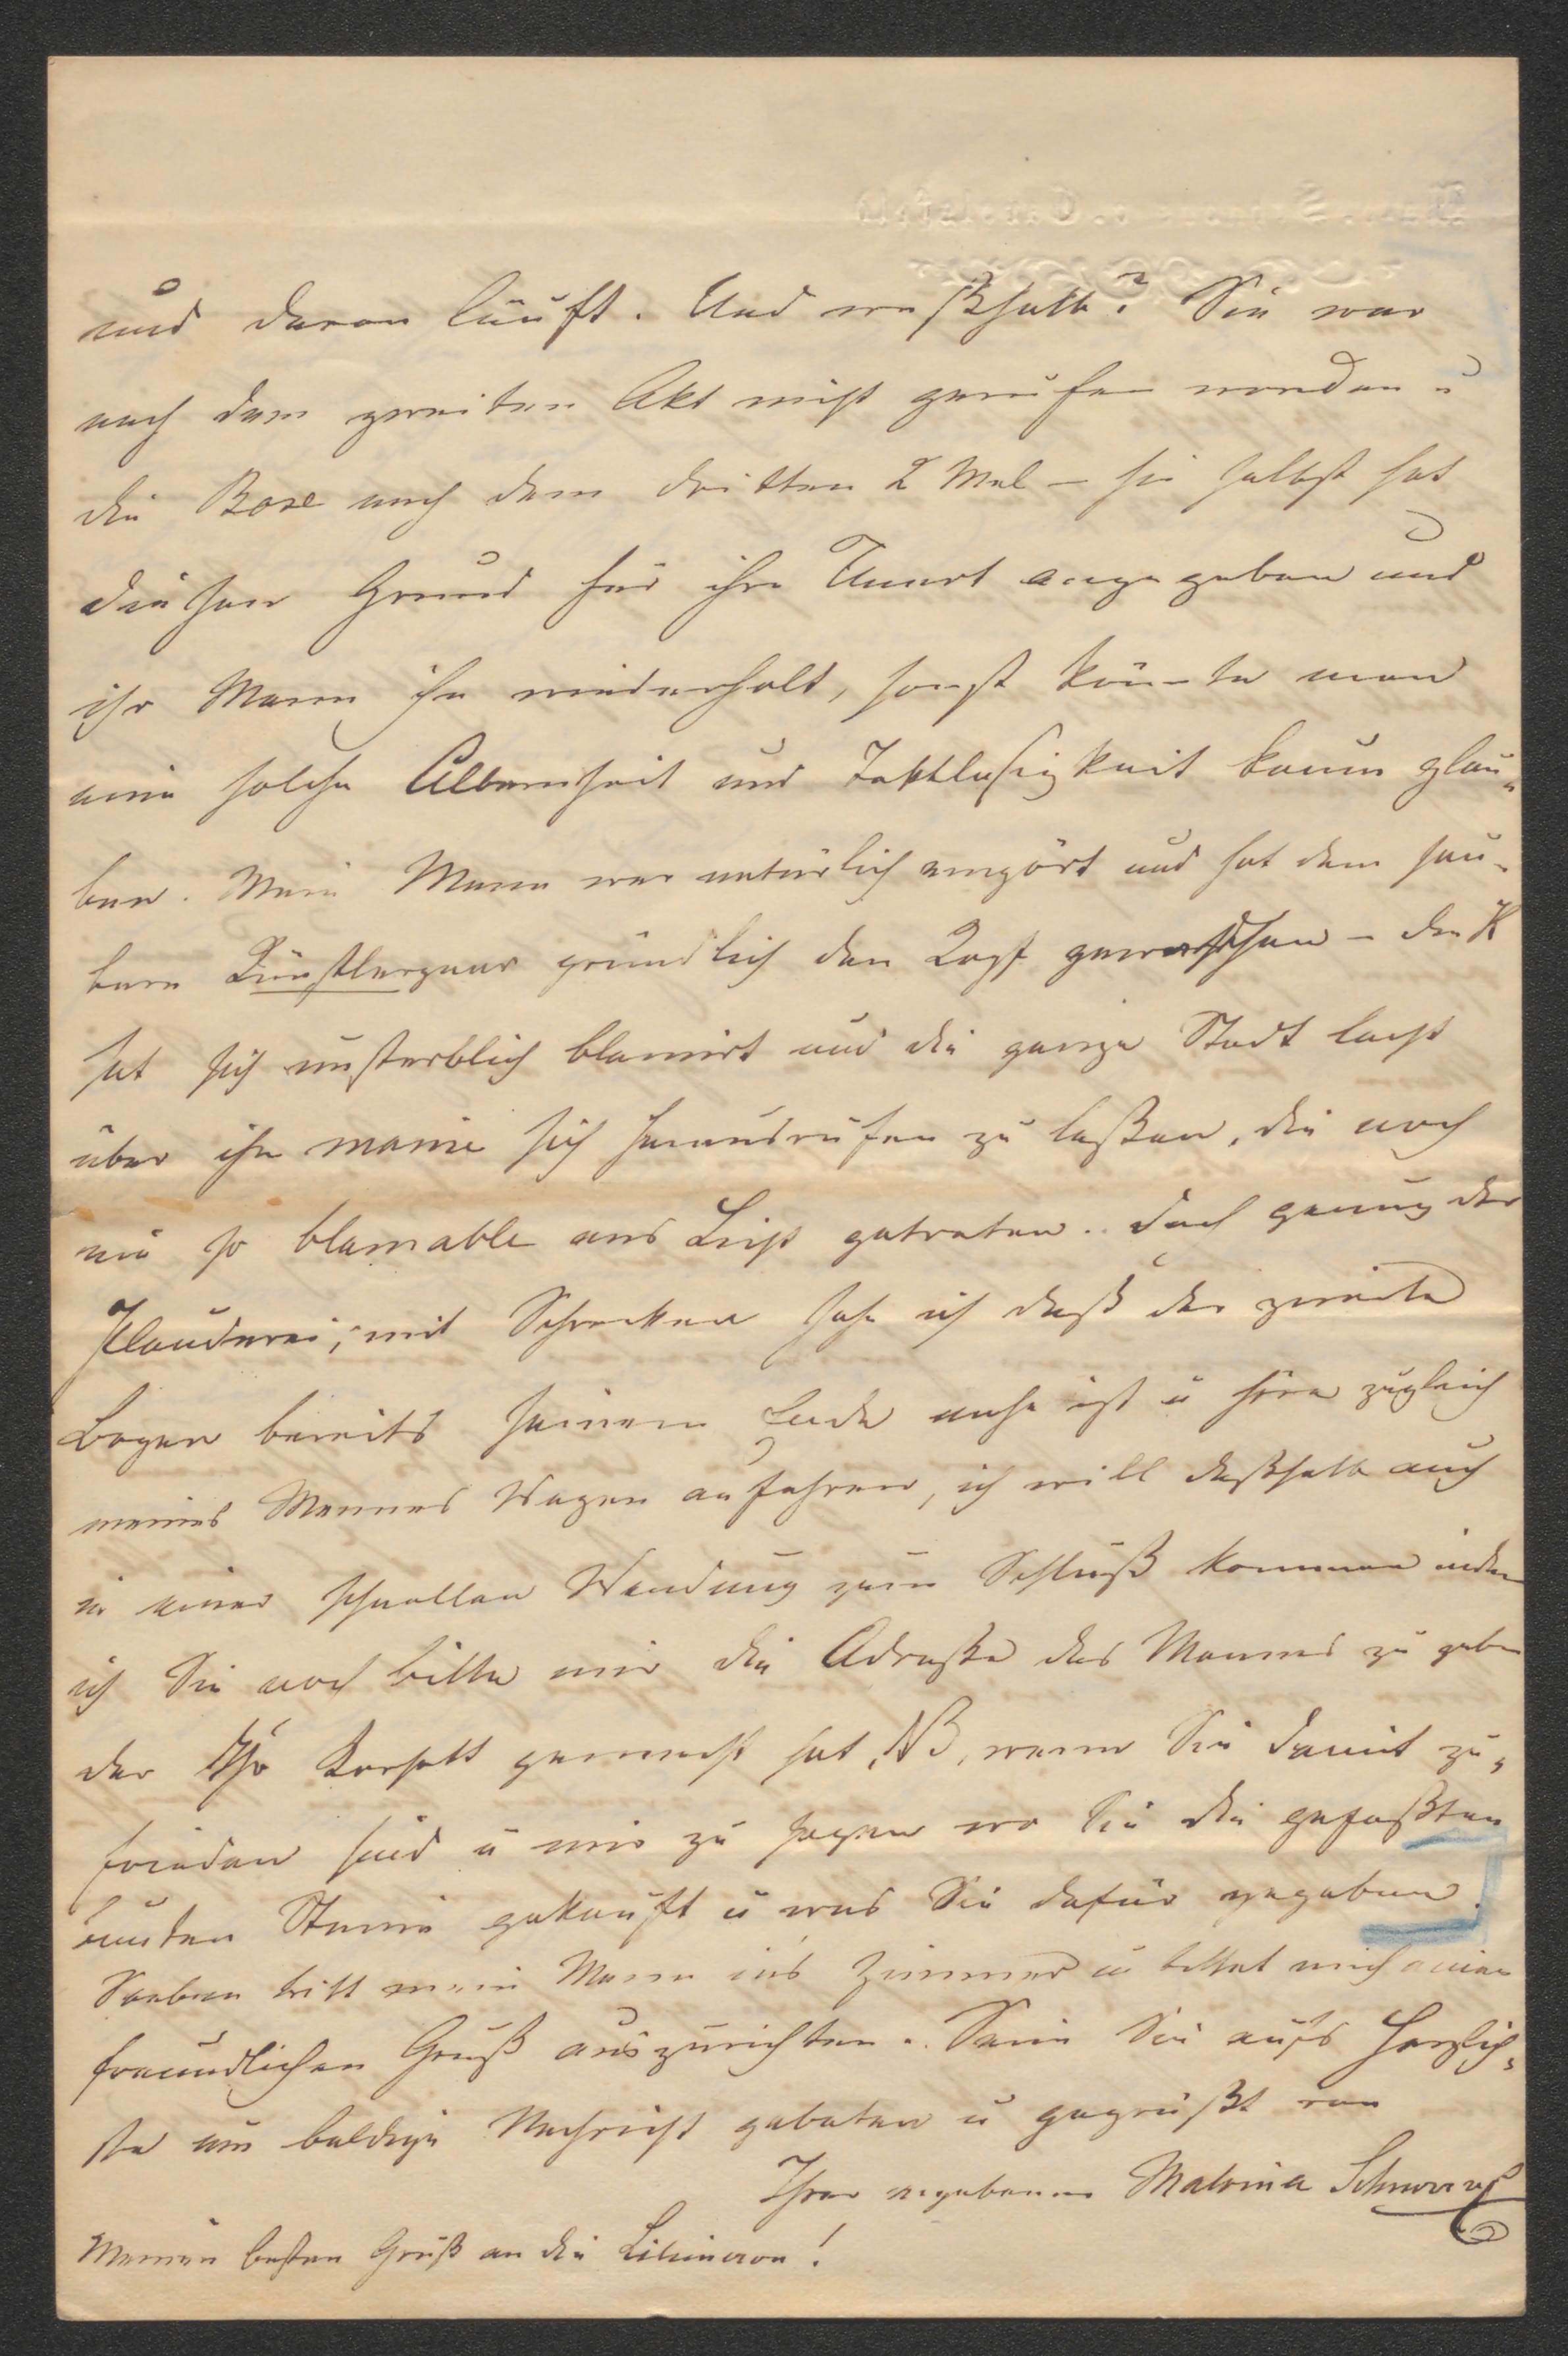 und davon läuft. Und weßhalb? Sie war
nach dem zweiten Akt nicht gerufen worden u
die Bose nach dem dritten 2 Mal – sie selbst hat
diesen Grund für ihre Unart angegeben und
ihr Mann ihn wiederholt, sonst könnte man
eine solche Albernheit und Taktlosigkeit kaum glau„
ben. Mein Mann war natürlich empört und hat dem sau„
bern Künstlerpaar gründlich den Kopf gewaschen – die K
hat sich unsterblich blamirt und die ganze Stadt lacht
über ihre manie sich herausrufen zu laßen, die noch
nie so blamable ans Licht getreten. Doch genug der
Plauderei, mit Schrecken sehe ich daß der zweite
Bogen bereits seinem Ende nahe ist u höre zugleich
meines Mannes Wagen anfahren, ich will deßhalb auch
in einer schnellen Wendung zum Schluß kommen indem
ich Sie noch bitte mir die Adreße des Mannes zu geben
der Ihr Korsett gemacht hat, NB, wenn Sie damit zu„
frieden sind u mir zu sagen wo Sie die gefaßten
bunten Steine gekauft u was Sie dafür gegeben.
Soeben tritt mein Mann in's Zimmer u bittet mich einen
freundlichen Gruß auszurichten. Seien Sie aufs Herzlich„
ste um baldige Nachricht gebeten u gegrüßt von
Ihrer ergebenen Malvina Schnorr v
Meinen besten Gruß an die